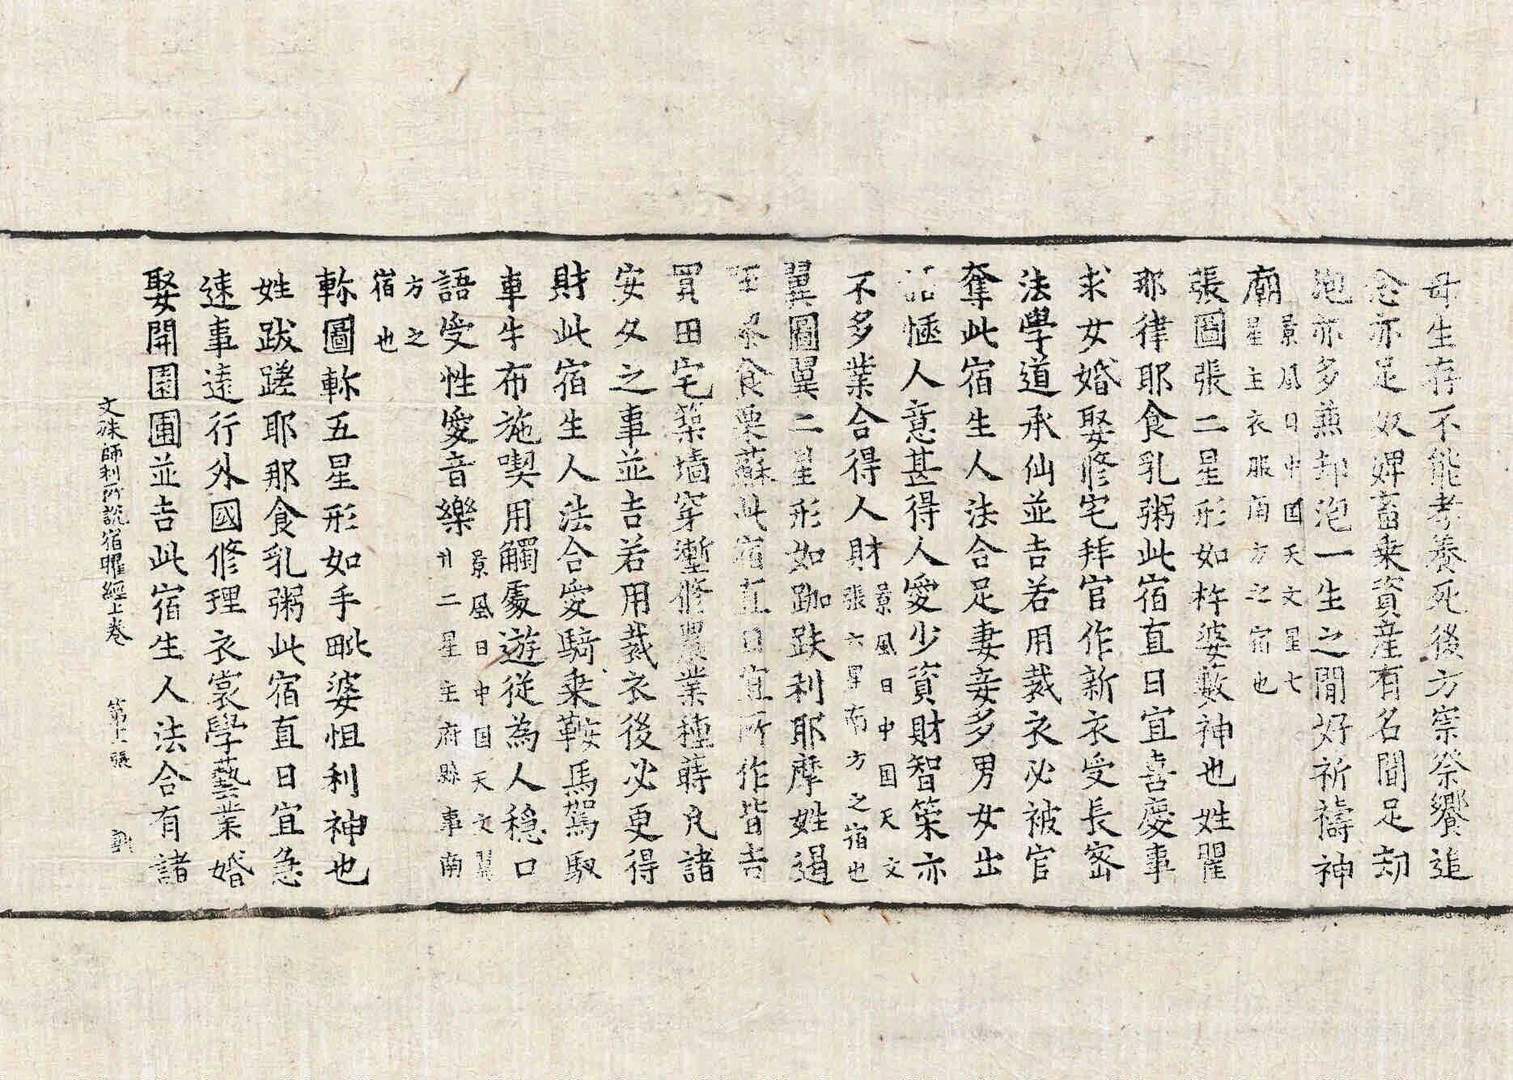 母生存不能孝養死後方崇祭饗追
念亦足奴婢畜乗資産有名聞足刧
泡亦多薫卸泡一生之間好祈禱神
廟
景風日中国天文星七
星主衣服南方之宿也
張圖張二星形如杵婆藪神也姓瞿
那律耶食乳粥此宿直日宜喜慶事
求女婚娶修宅拜官作新衣受長密
法學道承仙並吉若用裁衣必被官
奪此宿生人法合足妻妾多男女出
語愜人意甚得人愛少資財智策亦
不多業合得人財
景風日中国天文
張六星南方之宿也
翼圖翼二星形如跏趺利耶摩姓遏
咥 食栗蘇此宿直日宜所作皆吉
買田宅築墻穿塹修農業種蒔凡諸
安久之事並吉若用裁衣後必更得
財此宿生人法合愛騎乗鞍馬駕馭
車牛布施喫用觸處遊従為人穏口
語受性愛音樂
景風日中国天文翼
廾二星主府縣事南
方之
宿也
軫圖軫五星形如手毗婆怛利神也
姓跋蹉耶那食乳粥此宿直日宜急
速事遠行外國修理衣裳學藝業婚
娶開園圃並吉此宿生人法合有諸
文殊師利所説宿曜經上卷 第 張